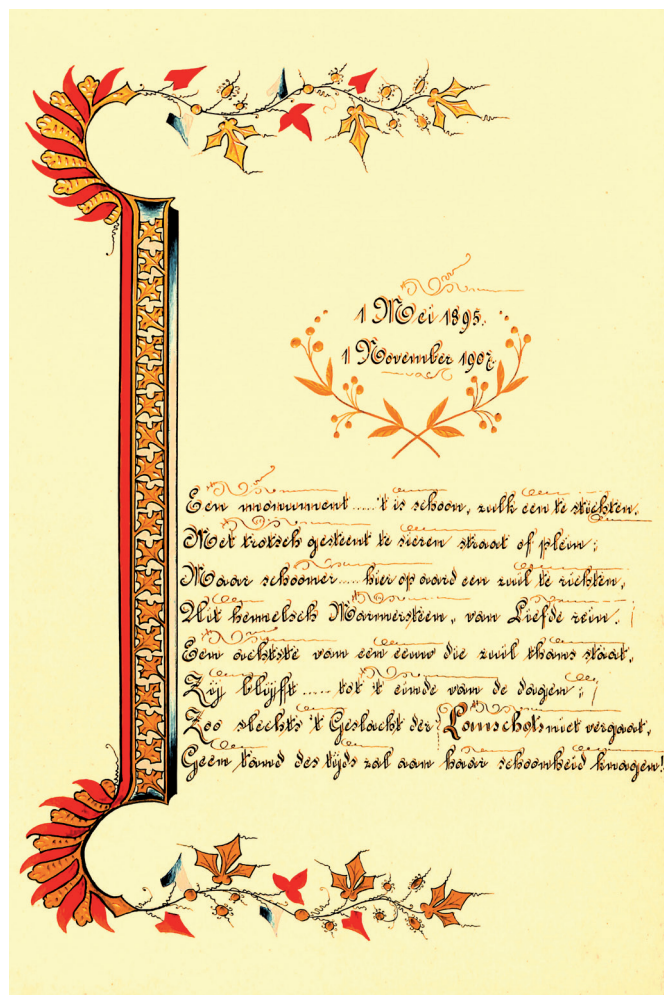 1 Mei 1895.
1 November 1907.
Een monument ..... 't is schoon, zulk een te stichten.
Met trotsch gesteent te sieren straat of plein;
Maar schooner ..... hier op aard een zuil te richten,
Uit hemelsch Marmersteen, van Liefde rein.
Een achtste van een eeuw die zuil thans staat,
Zij blijft ..... tot 't einde van de dagen;
Zoo slechts 't Geslacht der Lanschots niet vergaat,
Geen tand des tijds zal aan haar schoonheid knagen!